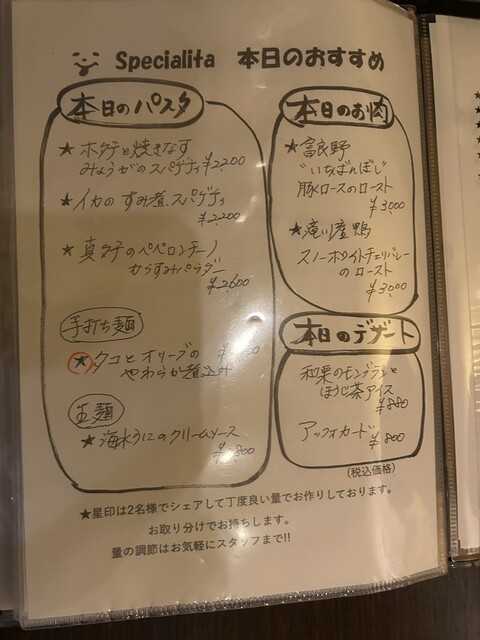 Specialita 本日のおすすめ
本日のパスタ
★ホタテと焼きなす
みょうがのスパゲティ ¥2,200
★イカのすみ煮スパゲティ
¥2,200
★真ダチのペペロンチーノ
からすみパウダー
¥2,600
手打ち麺
★タコとオリーブの
やわらか煮込み
生麺
★海水うにのクリームソース
本日のお肉
★富良野
"いちばんぼし"
豚ロースのロースト
¥3,000
★滝川産鴨
スノーホワイトチェリバレー
のロースト
¥3,000
本日のデザート
和栗のモンブランと
ほうじ茶アイス
¥880
アッフォガード
¥800
(税込価格)
★星印は2名様でシェアして丁度良い量でお作りしております。
お取り分けでお持ちします。
量の調節はお気軽にスタッフまで!!